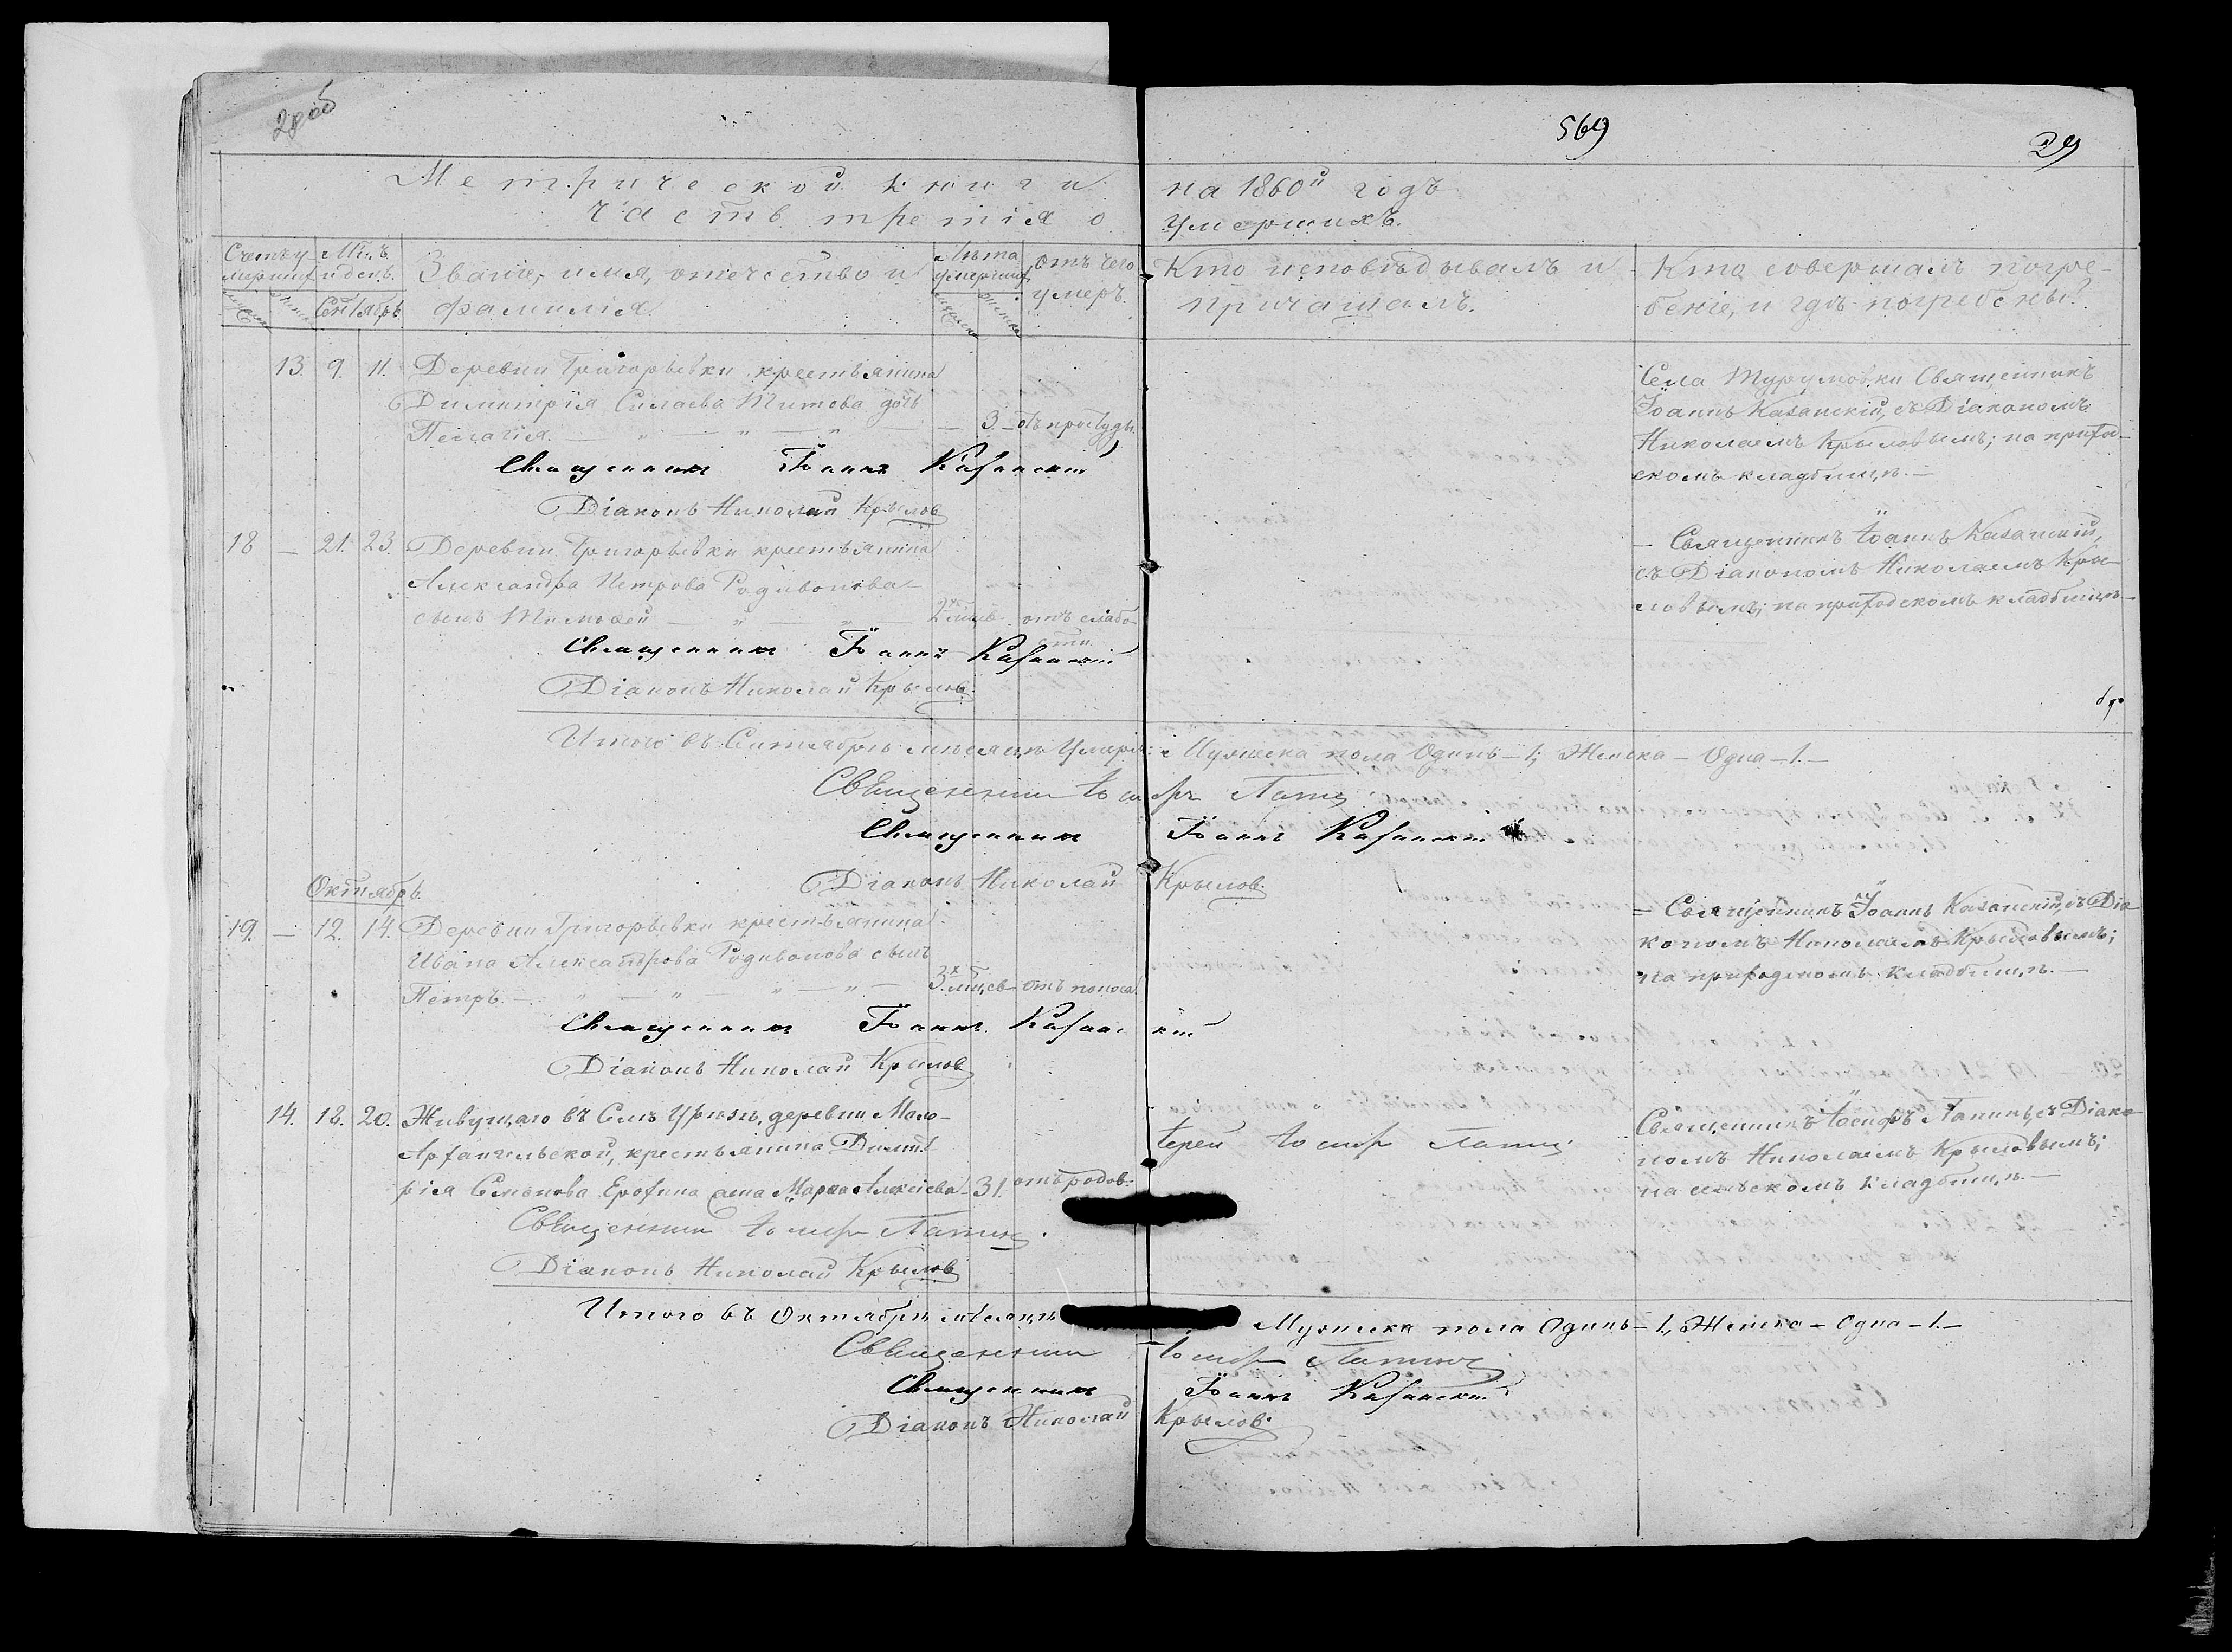 28об
569
29
Метрической книги на 1860й годъ
часть третія о умершихъ.
Счетъ умершихъ
Мцъ и день.
Сентябрь
Званіе, имя, отечество и фамилія.
Лѣта умершихъ
отъ чего умеръ.
Кто исповѣдывалъ и причащалъ.
Кто совершалъ погребеніе, и гдѣ погребены?
13. 9. 11. Деревни Григорьевки крестьянина
Димитрія Силаева Титова дочь
Пелагія. — 3. — отъ простуды.
Села Турумовки Священникъ
Іоаннъ Казанскій, съ Діакономъ
Николаемъ Крыловымъ; на приход-
скомъ кладбищѣ. —
Священникъ Іоаннъ Казанскій
Діаконъ Николай Крылов
18 — 21. 23. Деревни Григорьевки крестьянина
Александра Петрова Родивонова
сынъ Тимоѳей — 2хъ отъ слабо-
сти.
— Священникъ Іоаннъ Казанскій,
съ Діакономъ Николаемъ Кры-
ловымъ; на приходскомъ кладбищѣ —
Священникъ Іоаннъ Казанскій
Діаконъ Николай Крылов
Итого въ Сентябрѣ мѣсяцѣ умерло: Мужеска пола Одинъ — 1; Женска — Одна — 1. —
Священникъ Іосифъ Лапинъ
Священникъ Іоаннъ Казанскій
Діаконъ Николай Крылов.
Октябрь.
19. — 12. 14. Деревни Григорьевки крестьянина
Ивана Александрова Родивонова сынъ
Петръ. — 3х отъ поноса.
— Священникъ Іоаннъ Казанскій, съ Діа-
кономъ Николаемъ Крыловымъ;
на приходскомъ кладбищѣ. —
Священникъ Іоаннъ Казанскій
Діаконъ Николай Крылов
14. 18. 20. Живущаго въ Селѣ деревни Мало-
Архангельской, крестьянина Димит-
рія Семенова Ерохина жена Марѳа Алексіева — 31. отъ родов.
Іерей Іосифъ Лапинъ
Священникъ Іосифъ Лапинъ, съ Діако-
номъ Николаемъ Крыловымъ;
на сельскомъ кладбищѣ. —
Священникъ Іосифъ Лапинъ.
Діаконъ Николай Крылов
Итого въ Октябрѣ мѣсяцѣ Мужеска пола Одинъ — 1., Женска — Одна — 1. —
Священникъ Іосифъ Лапинъ
Священникъ Іоаннъ Казанскій
Діаконъ Николай Крылов.